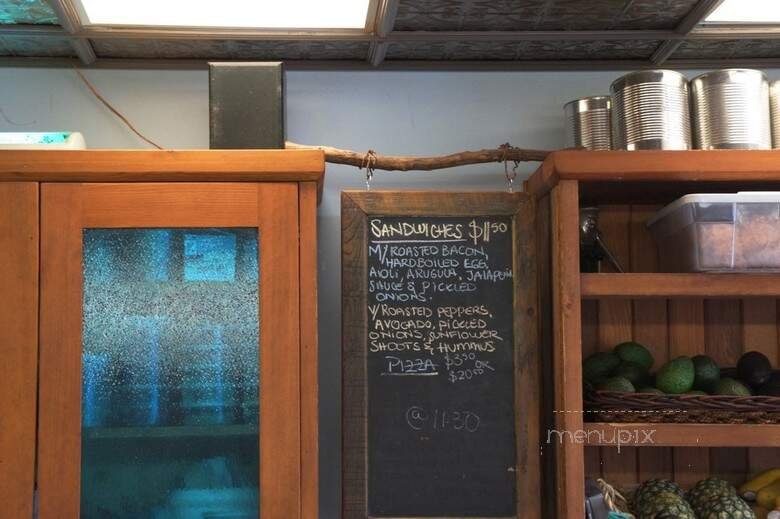 SANDWICHES $11.50
M/ROASTED BACON,
HARDBOILED EGG,
AIOLI, ARUGULA, JALAPEÑO
SAUCE & PICKLED
ONIONS.
V/ROASTED PEPPERS,
AVOCADO, PICKLED
ONIONS, SUNFLOWER
SHOOTS & HUMMUS
PIZZA $3.50
OR
$20.00
@ 11:30
menupix